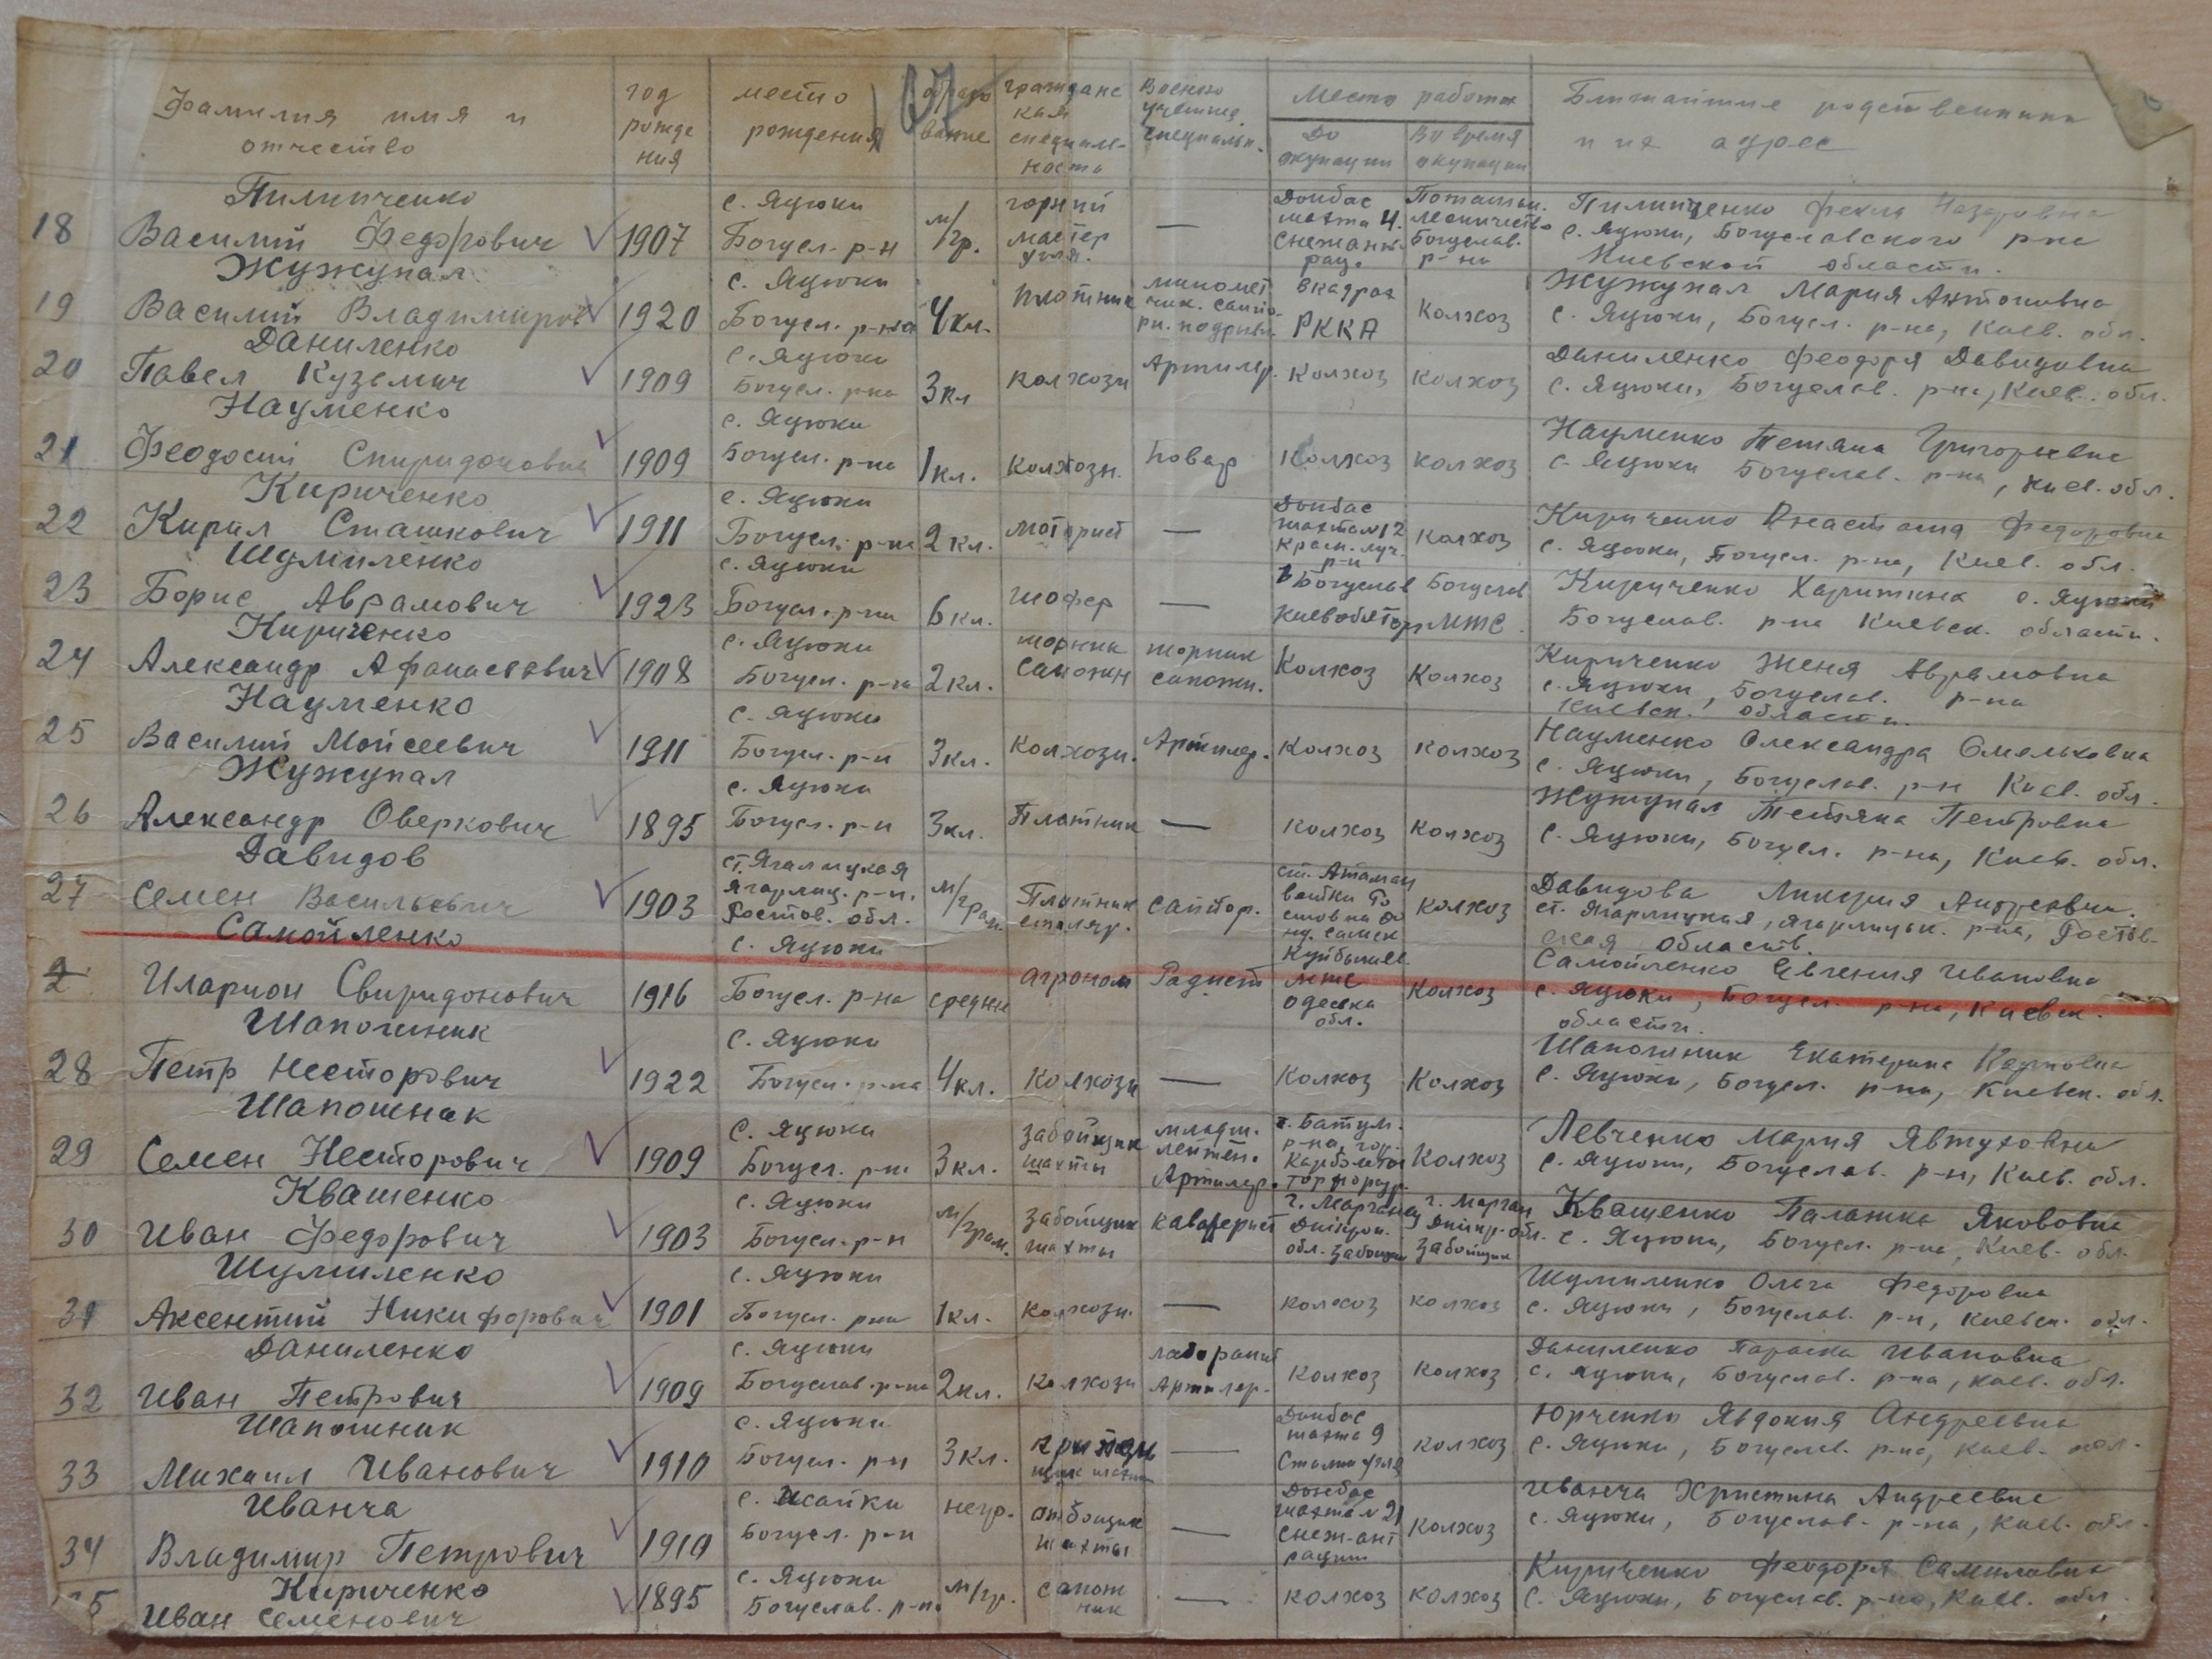 Фамилия имя и отчество
год рождения
место рождения
образование
гражданская специальность
Военно учетная специальн.
Место работы
До окупации
Во время окупации
Ближайшие родственники и их адрес
18 Пилипченко Василий Федорович 1907 с. Яцюки Богусл. р-н м/гр. горный мастер угля. — Донбас шахта 4. Снежант. рац. Поташн. лесничество Богуслав. р-на Пилипченко Фекла Назаровна
с. Яцюки, Богуславского р-на
Киевской области.
19 Жужупал Василий Владимиров 1920 с. Яцюки Богусл. р-на 4 кл. плотник миномет в кадрах РККА Колхоз Жужупал Мария Антоновна
с. Яцюки, Богусл. р-на, Киев. обл.
20 Даниленко Павел Кузьмич 1909 с. Яцюки Богусл. р-на 3 кл колхозн Артилер. Колхоз Колхоз Даниленко Феодоря Давидовна
с. Яцюки, Богуслав. р-на, Киев. обл.
21 Науменко Феодосий Спиридонович 1909 с. Яцюки Богусл. р-на 1 кл. колхозн. повар Колхоз колхоз Науменко Тетяна Григорьевна
с. Яцюки Богуслав. р-на, Киев. обл.
22 Кириченко Кирил Сташкович 1911 с. Яцюки Богусл. р-на 2 кл. моторист — Донбас шахта №12 Красн. луч. р-н Колхоз Кириченко Анастасия Федоровна
с. Яцюки, Богусл. р-на, Киев. обл.
23 Шумиленко Борис Аврамович 1923 с. Яцюки Богусл. р-на 6 кл. шофер — в Богуслав Киевоблторг Богуслав МТС Кириченко Харитина с. Яцюки
Богуслав. р-на Киевск. области.
24 Кириченко Александр Афанасьевич 1908 с. Яцюки Богусл. р-на 2 кл. шорник сапожн шорник сапожн. Колхоз Колхоз Кириченко Женя Аврамовна
с. Яцюки, Богуслав. р-на
Киевск. области.
25 Науменко Василий Мойсеевич 1911 с. Яцюки Богусл. р-н 3 кл. Колхозн. Артилер. Колхоз колхоз Науменко Олександра Омельковна
с. Яцюки, Богуслав. р-н Киев. обл.
26 Жужупал Александр Оверкович 1895 с. Яцюки Богусл. р-н 3 кл. Плотник — колхоз Колхоз Жужупал Тетяна Петровна
с. Яцюки, Богусл. р-на, Киев. обл.
27 Давидов Семен Васильевич 1903 ст. Ягалицкая Ягарлиц. р-н. Ростов. обл. м/грам. Плотник столяр. сапйор. ст. Атаман Колхоз Давидова Андреевна.
ст. Ягарлицкая, Ягарлицк. р-на, Ростов-
ская область.
2 Самойленко Иларион Свиридонович 1916 с. Яцюки Богусл. р-на средне агроном Радист Куйбышев. МТС Одеска обл. Колхоз Самойленко Евгения Ивановна
с. Яцюки, Богусл. р-на, Киевск.
области.
28 Шапошник Петр Несторович 1922 с. Яцюки Богусл. р-на 4 кл. Колхозн — Колхоз Колхоз Шапошник Екатерина Карповна
с. Яцюки, Богусл. р-на, Киевск. обл.
29 Шапошнак Семен Несторович 1909 с. Яцюки Богусл. р-на 3 кл. забойщик шахты младш. лейтен. Артилер. г. Батум. р-на, Колхоз Левченко Мария Явтуховна
с. Яцюки, Богуслав. р-н, Киев. обл.
30 Кващенко Иван Федорович 1903 с. Яцюки Богусл. р-н м/грам. забойщик шахты кавалерист г. Марганец Днипроп. обл. забойщик г. Марган Днипр. обл. забойщик Кващенко Палажка Якововна
с. Яцюки, Богусл. р-на, Киев. обл.
31 Шумиленко Аксентий Никифорович 1901 с. Яцюки Богусл. р-на 1 кл. колхозн. — колхоз колхоз Шумиленко Ольга Федоровна
с. Яцюки, Богуслав. р-н, Киевск. обл.
32 Даниленко Иван Петрович 1909 с. Яцюки Богуслав. р-на 2 кл. Колхозн лаборант Артилер. колхоз колхоз Даниленко Параска Ивановна
с. Яцюки, Богуслав. р-на, Киев. обл.
33 Шапошник Михаил Иванович 1910 с. Яцюки Богусл. р-н 3 кл. — Донбас шахта 9 Сталин угля колхоз Юрченко Явдокия Андреевна
с. Яцюки, Богуслав. р-на, Киев. обл.
34 Иванча Владимир Петрович 1910 с. Исайки Богусл. р-н негр. отбойщик шахты — Донбас шахта №21 Снеж-ант рацит Колхоз Иванча Христина Андреевна
с. Яцюки, Богуслав. р-на, Киев. обл.
35 Кириченко Иван Семенович 1895 с. Яцюки Богуслав. р-на м/гр. сапож ник — колхоз колхоз Кириченко Феодоря Самиловна
с. Яцюки, Богуслав. р-на, Киев. обл.